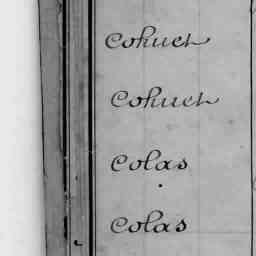 Cohuet
Cohuet
Colas
Colas